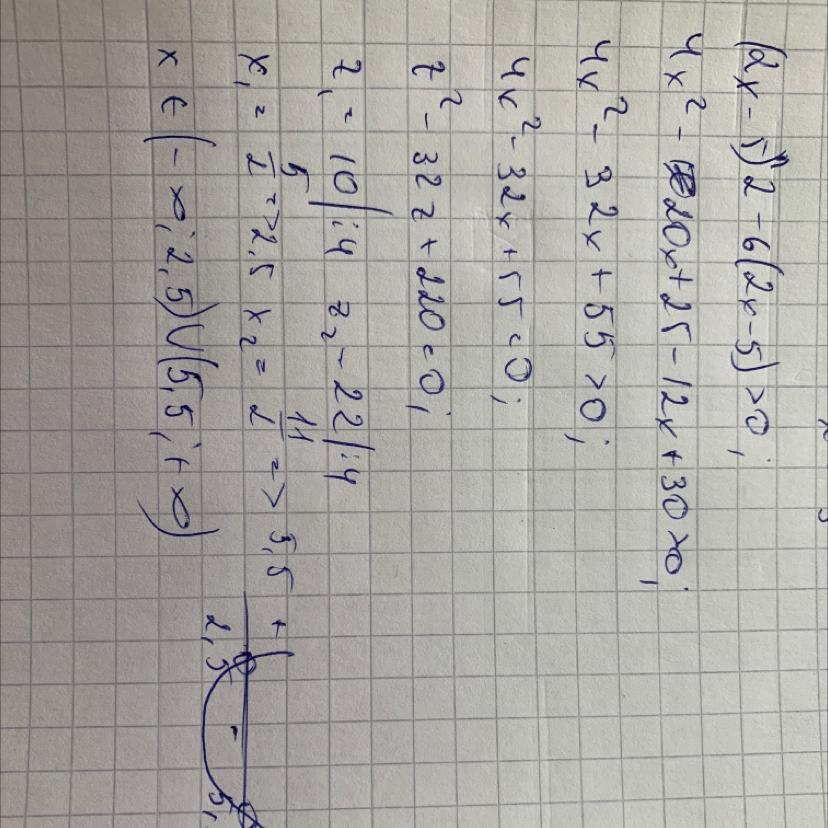 (2x-5)2-6(2x-5)>0;
4x²-20x+25-12x+30>0;
4x²-32x+55>0;
4x²-32x+55=0;
z²-32z+220=0;
z₁=10|:4 z₂-22|:4
x₁=5/2=>2,5 x₂=11/2=>5,5
x∈(-∞;2,5)∪(5,5;+∞)
+ -
2,5 5,